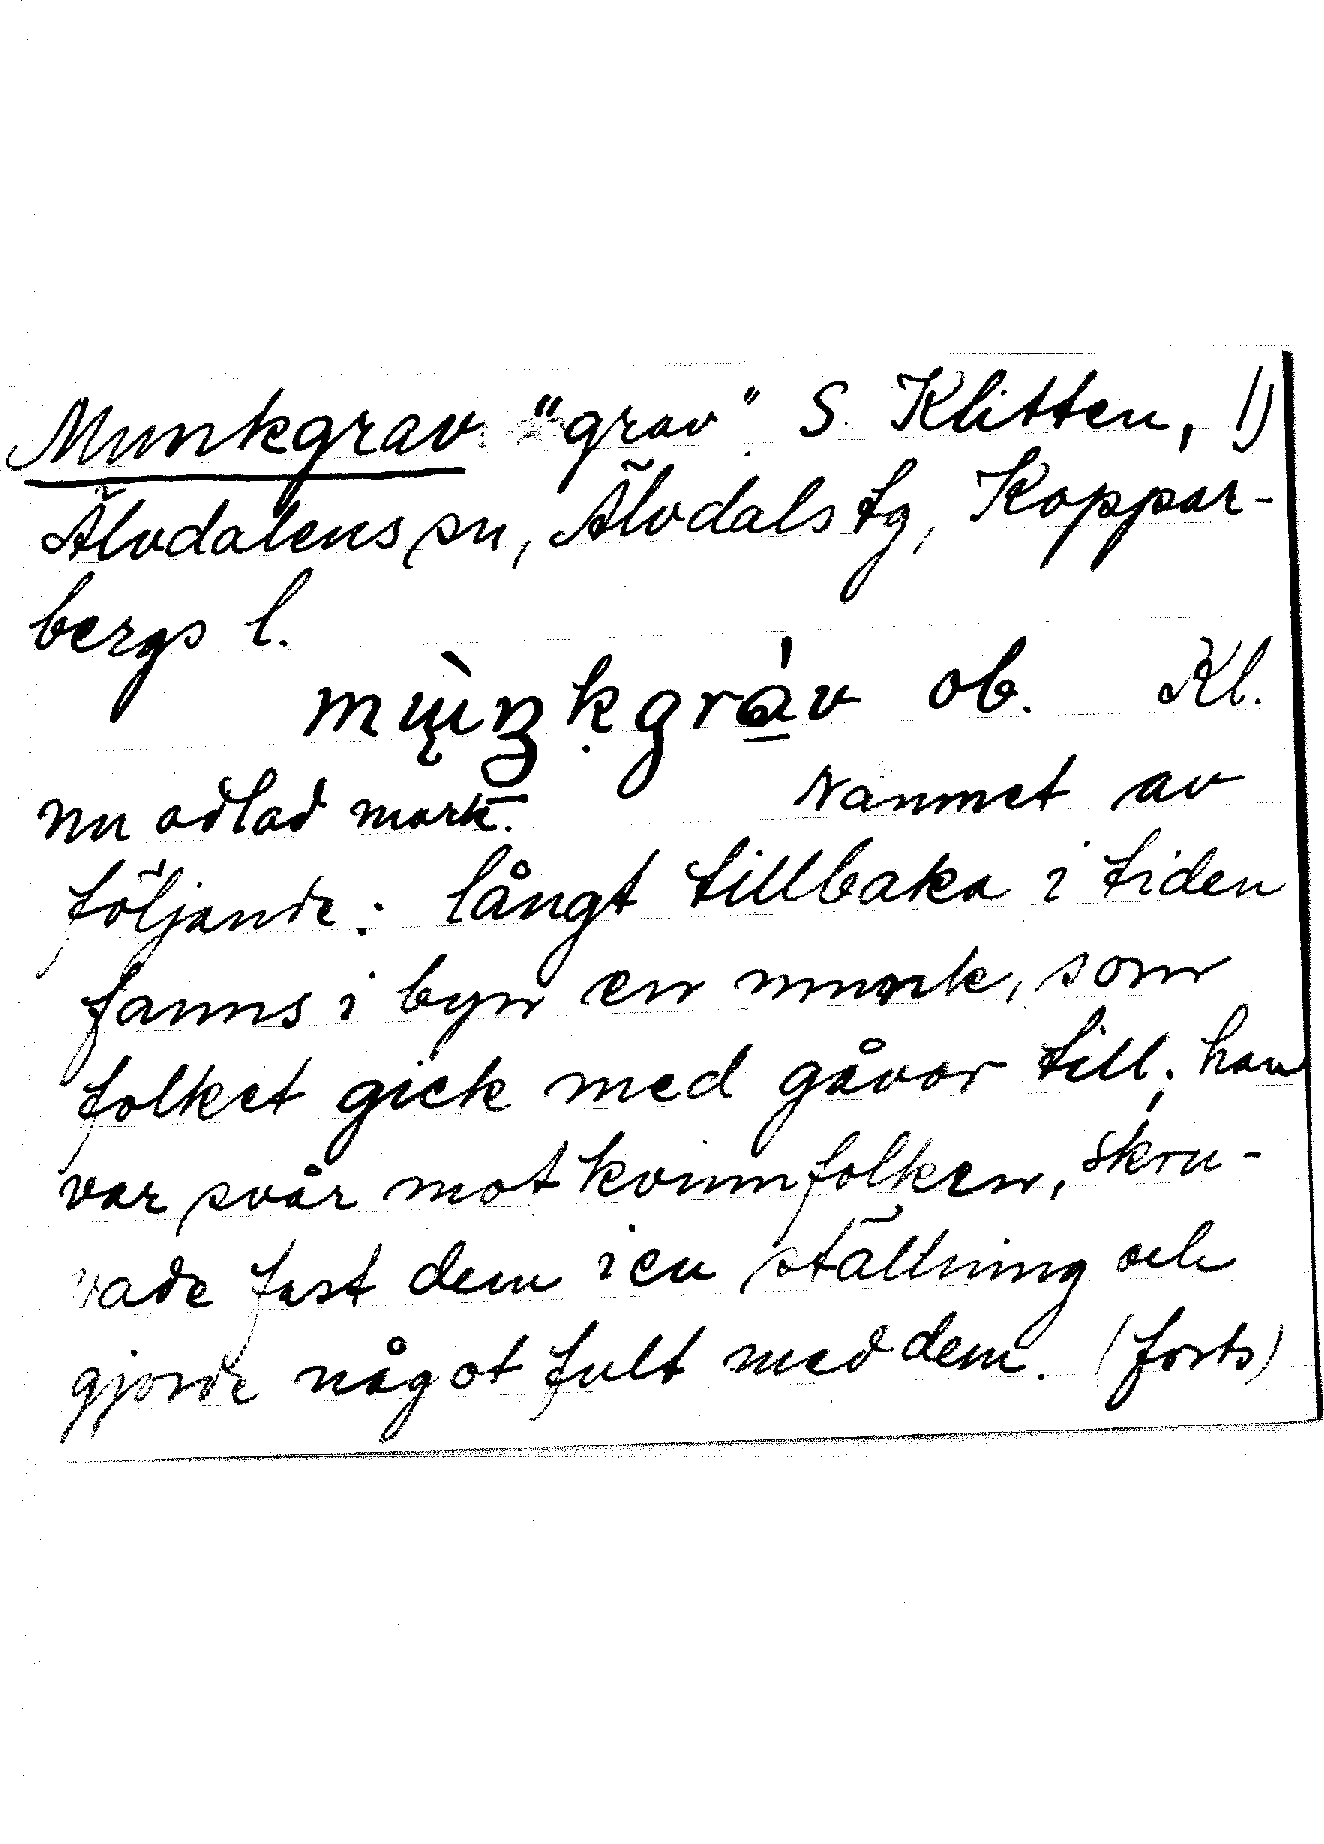 Munkgrav "grav" S. Klitten, 1)
Älvdalens sn, Älvdals tg, Koppar-
bergs l.
ob. Kl.
nu odlad mark. Namnet av
följande: långt tillbaka i tiden
fanns i byn en munk, som
folket gick med gåvor till; han
var svår mot kvinnfolken, skru-
vade fast dem i en ställning och
gjorde något fult med dem. (forts)